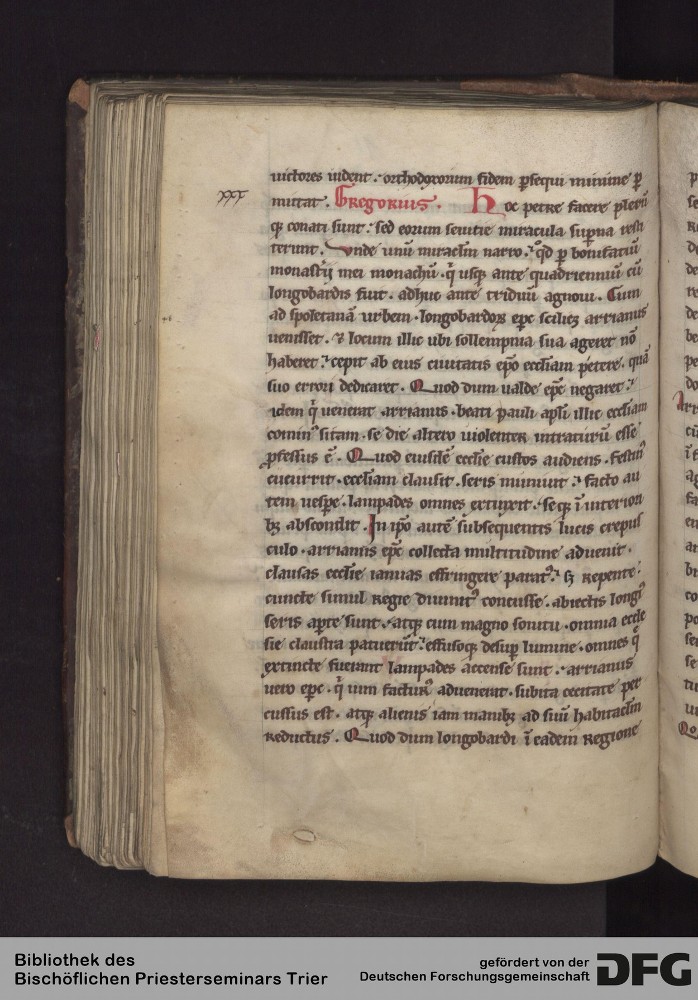 uictores uident. orthodoxorum fidem ꝑsequi minime ꝑ
xxx
mutat. Gregorius. Hoc petre facere plerīꝙ
q conati sunt. sed eorum seuitie miracula suꝑna resti
terunt. Vnde unū miraclm narro. qđ ꝑ bonifatiū
monastẏ mei monachū. q̇ usꝙ ante quadrienniū cū
longobardis fuit. adhuc ante triduū agnoui. Cum
ad spoletanā urbem. longobardoꝝ epc scilicꝫ arrianus
uenisset. & locum illic ubi sollempnia sua ageret nō
haberet. cepit ab eius ciuitatis ep̄o eccliam petere. quā
suo errori dedicaret. Quod dum ualde epc negaret.
idem q̇ uenerat arrianus. beati pauli apli illic eccliam
comin⁹ sitam. se die altero uiolenter intraturū esse
ꝓfessus ē. Quod eiusdē ecclie custos audiens. festin⁹
cucurrit. eccliam clausit. seris muniuit. facto au
tem uesꝑe. lampades omnes extinxit. seqꝫ ī interiori
bꝫ abscondit. In ip̄o autē subsequentis lucis crepus
culo. arrianus epc collecta multitudine aduenit.
clausas ecclie ianuas effringere parat⁹. sꝫ repente.
cuncte simul regie diuinit⁹ concusse. abiectis longi⁹
seris aꝑte sunt. atqꝫ cum magno sonitu. omnia eccle
sie claustra patuerūt. effusoqꝫ desuꝑ lumine. omnes q̄
extincte fuerant lampades accense sunt. arrianus
uero epc. q̇ uim factur⁹ aduenerat. subita cecitate per
cussus est. atqꝫ alienis iam manibꝫ ad suū habitaclm
reductus. Quod dum longobardi ī eadem regione
Bibliothek des
Bischöflichen Priesterseminars Trier
gefördert von der
Deutschen Forschungsgemeinschaft
DFG